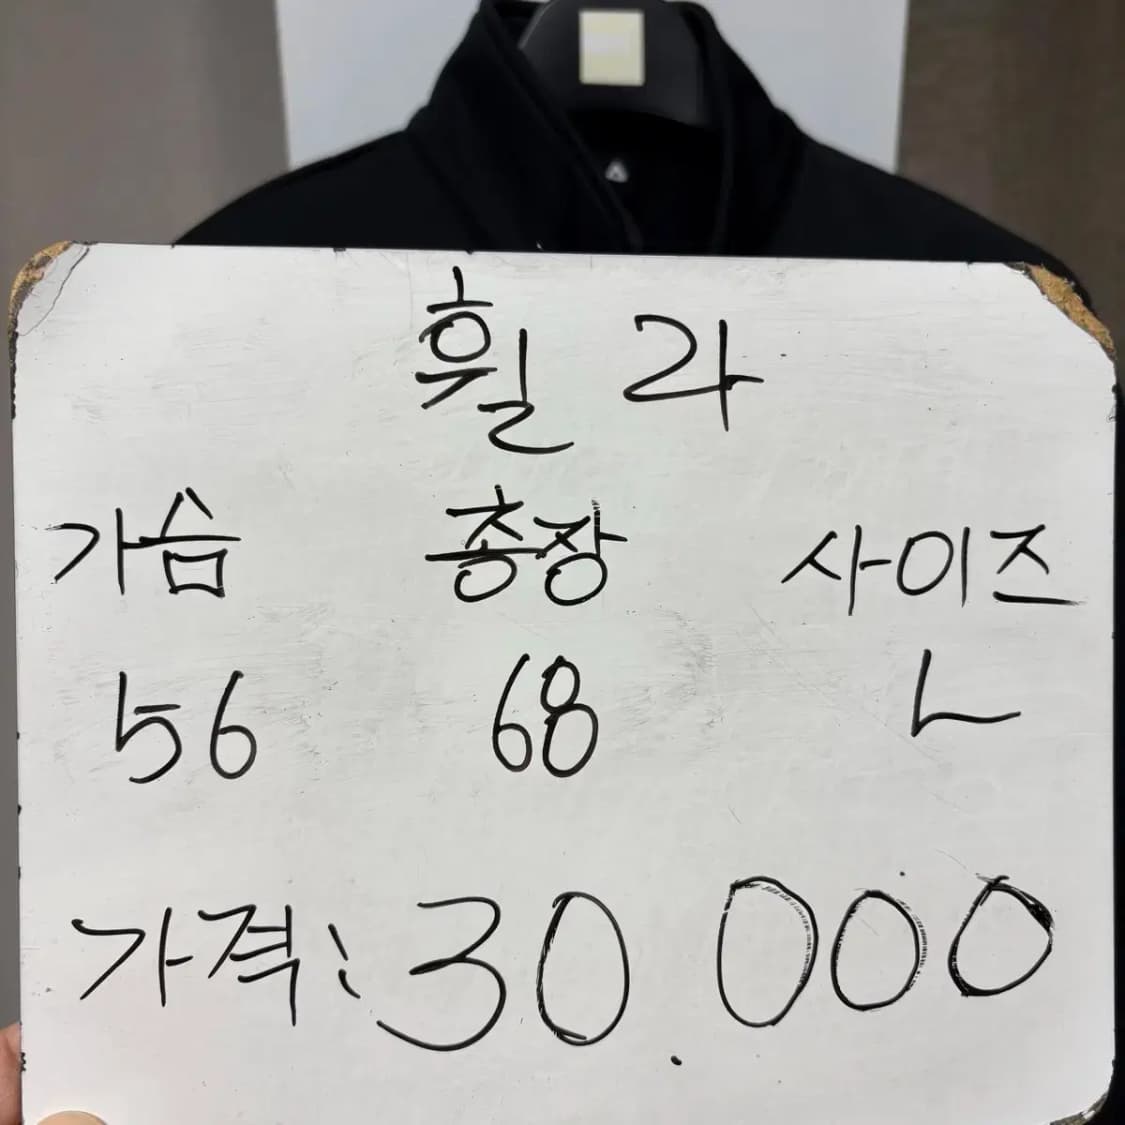 휠 라
가슴 총장 사이즈
56 68 L
가격: 30.000